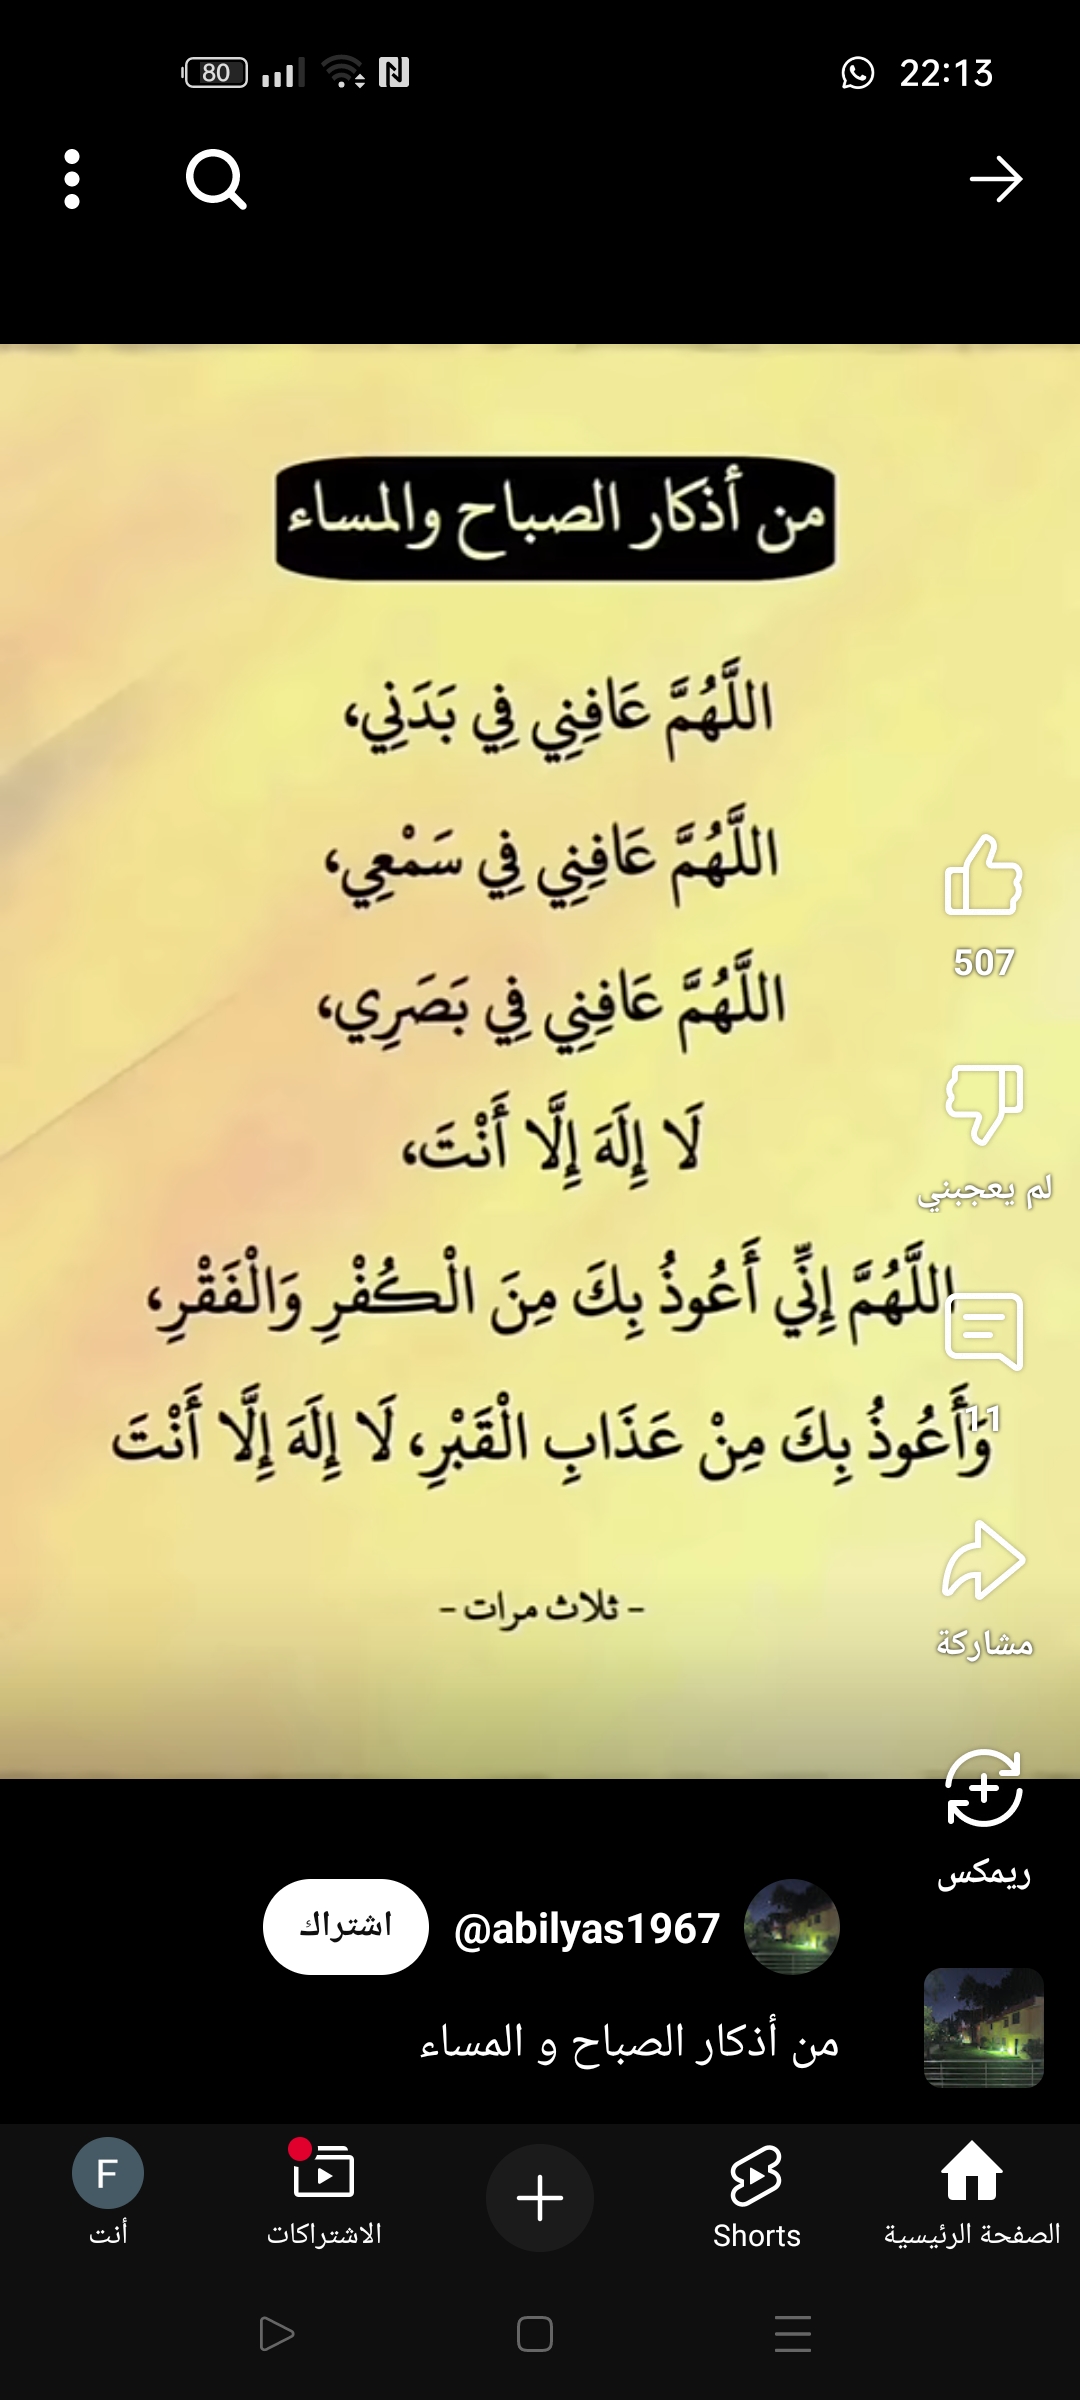 80
22:13
من أذكار الصباح والمساء
اللَّهُمَّ عَافِنِي فِي بَدَنِي،
اللَّهُمَّ عَافِنِي فِي سَمْعِي،
اللَّهُمَّ عَافِنِي فِي بَصَرِي،
لَا إِلَهَ إِلَّا أَنْتَ،
اللَّهُمَّ إِنِّي أَعُوذُ بِكَ مِنَ الْكُفْرِ وَالْفَقْرِ،
وَأَعُوذُ بِكَ مِنْ عَذَابِ الْقَبْرِ، لَا إِلَهَ إِلَّا أَنْتَ
- ثلاث مرات -
507
لم يعجبني
11
مشاركة
ريمكس
@abilyas1967
اشتراك
من أذكار الصباح و المساء
الصفحة الرئيسية
Shorts
الاشتراكات
F
أنت